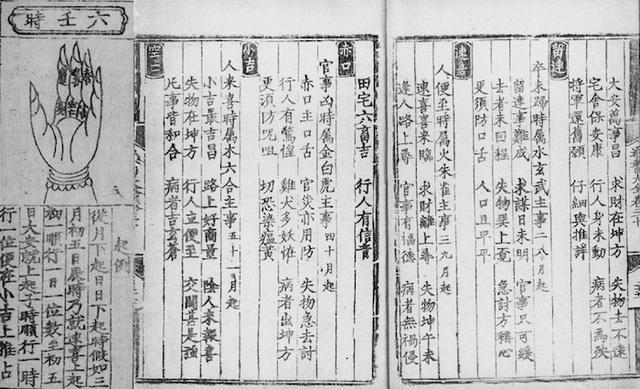 留連
大安萬事昌 求財在坤方 失物去不遠
宅舍保安康 行人身未動 病者不為殃
將軍還舊願 仔細與推詳
卒未歸時屬水玄武主事二八月起
留連事難成 求謀日未明 官事只可緩
去者未回程 失物巽上覓 急討方稱心
更須防口舌 人口且平平
速喜
人便至時屬火朱雀主事三九月起
速喜喜來臨 求財離上尋 失物坤午未
逢人路上尋 官事有福德 病者無禍侵
田宅六畜吉 行人有信音
赤口
官事凶時屬金白虎主事四十月起
赤口主口舌 官災亦用防 失物急去討
行人有驚惶 雞犬多妖怪 病者出坤方
更須防咒咀 切恐染瘟黄
小吉
人來喜時屬木六合主事五十一月起
小吉最吉昌 路上好商量 陰人來報喜
失物在坤方 行人立便至 交關甚是強
凡事皆和合 病者吉
空亡
六壬時
起例
從月下起日日下起時假如三
月初五日辰時乃就速喜上起
初一順行一日一位數至初五
日大安就上起子時順行一時
行一位便在小吉上推占